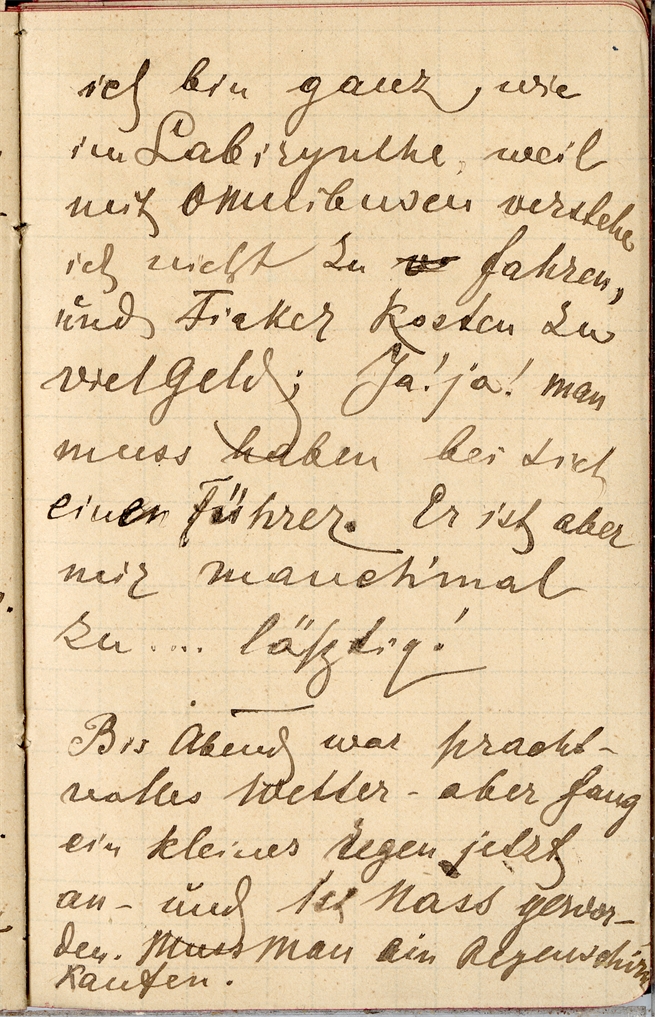 ich bin ganz, wie
im Labirynthe, weil
mit Omnibusen verstehe
ich nicht zu fahren,
und Fiaker kosten zu
viel Geld; Ja! ja! man
muss haben bei sich
einen Führer. Er ist aber
mir manchmal
zu .... läßtig!
Bis Abend war pracht-
volles Wetter - aber fang
ein kleines Regen jetzt
an - und ist Nass gewor-
den. Muss man ein Regenschirm
kaufen.